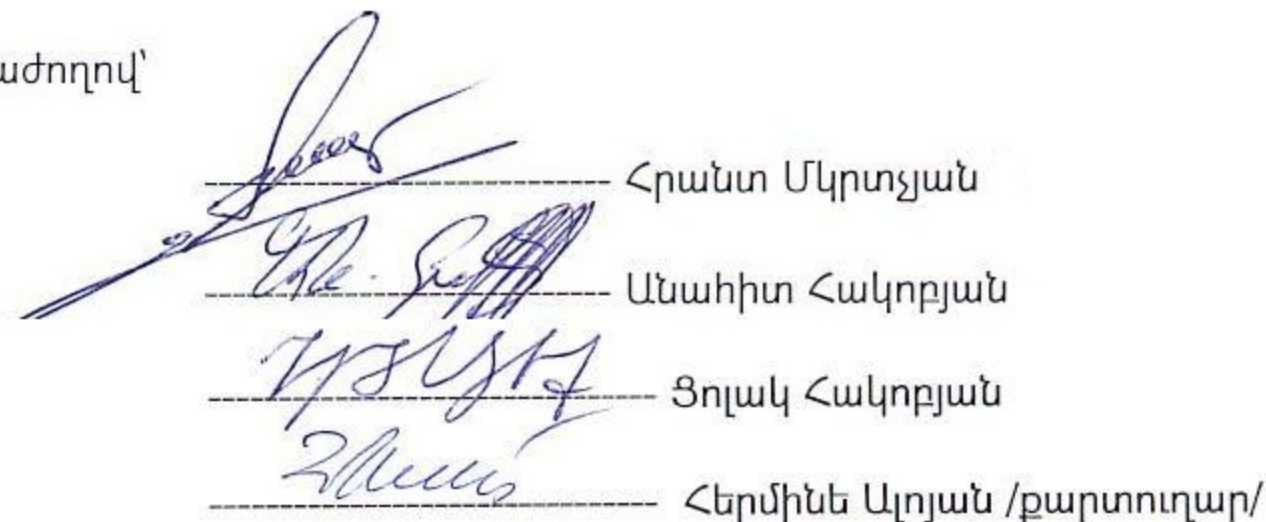 աժողով՝
Հրանտ Մկրտչյան
Անահիտ Հակոբյան
Ցոլակ Հակոբյան
Հերմինե Ալոյան /քարտուղար/